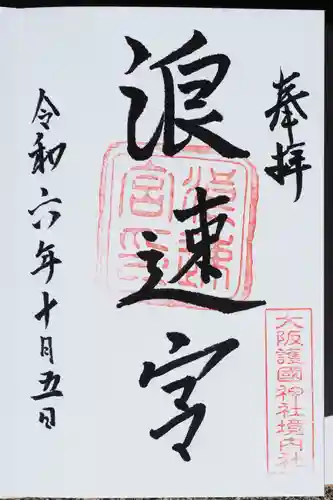 奉拝
大阪護國神社境内社
浪速宮
令和六年十月五日